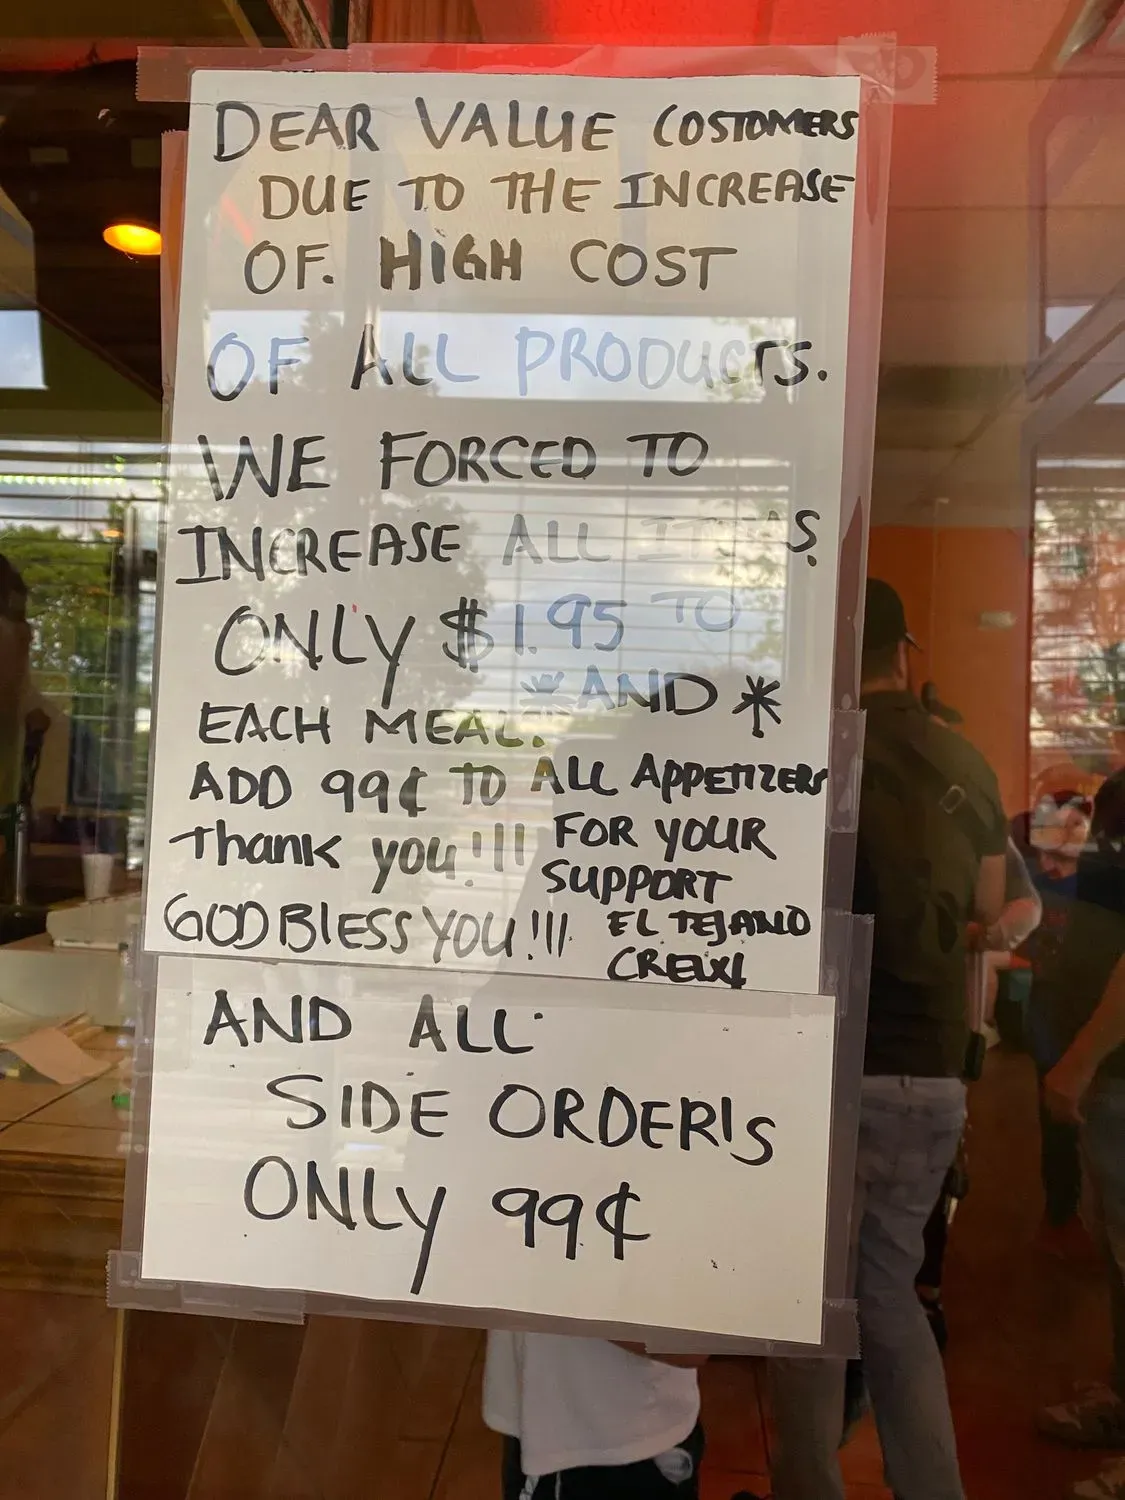 DEAR VALUE COSTOMERS
DUE TO THE INCREASE
OF. HIGH COST
OF ALL PRODUCTS.
WE FORCED TO
INCREASE ALL ITEMS.
ONLY $1.95 TO
EACH MEAL. *AND*
ADD 99¢ TO ALL APPETIZERS
Thank you!!! FOR YOUR
SUPPORT
GOD BLESS YOU!!! EL TEJANO
CREW
AND ALL
SIDE ORDER'S
ONLY 99¢